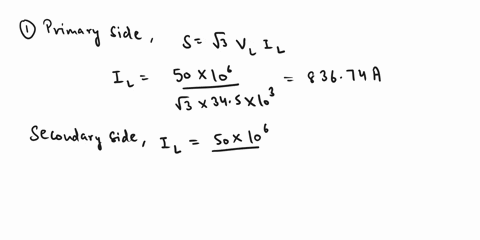 ① Primary side, S = √3 V_L I_L
I_L = 50 × 10⁶ / √3 × 34.5 × 10³ = 836.74 A
Secondary side, I_L = 50 × 10⁶